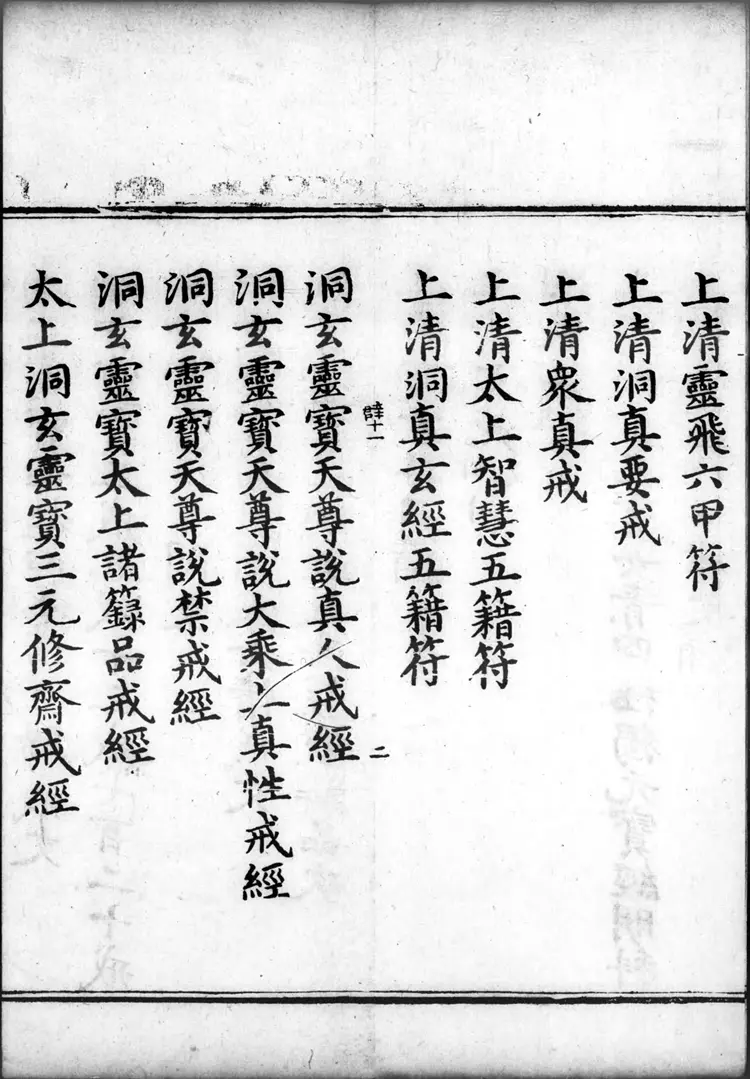 上清靈飛六甲符
上清洞真要戒
上清衆真戒
上清太上智慧五籍符
上清洞真玄經五籍符
洞玄靈寶天尊說真人戒經
洞玄靈寶天尊說大乘上真性戒經
洞玄靈寶天尊說禁戒經
洞玄靈寶太上諸籙品戒經
太上洞玄靈寶三元修齋戒經
十一
二